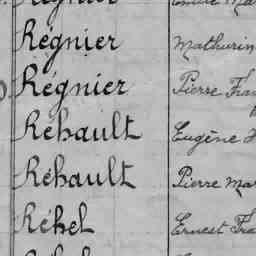 Régnier Mathurin
Régnier Pierre
Réhault Eugène
Réhault Pierre
Réhel Ernest